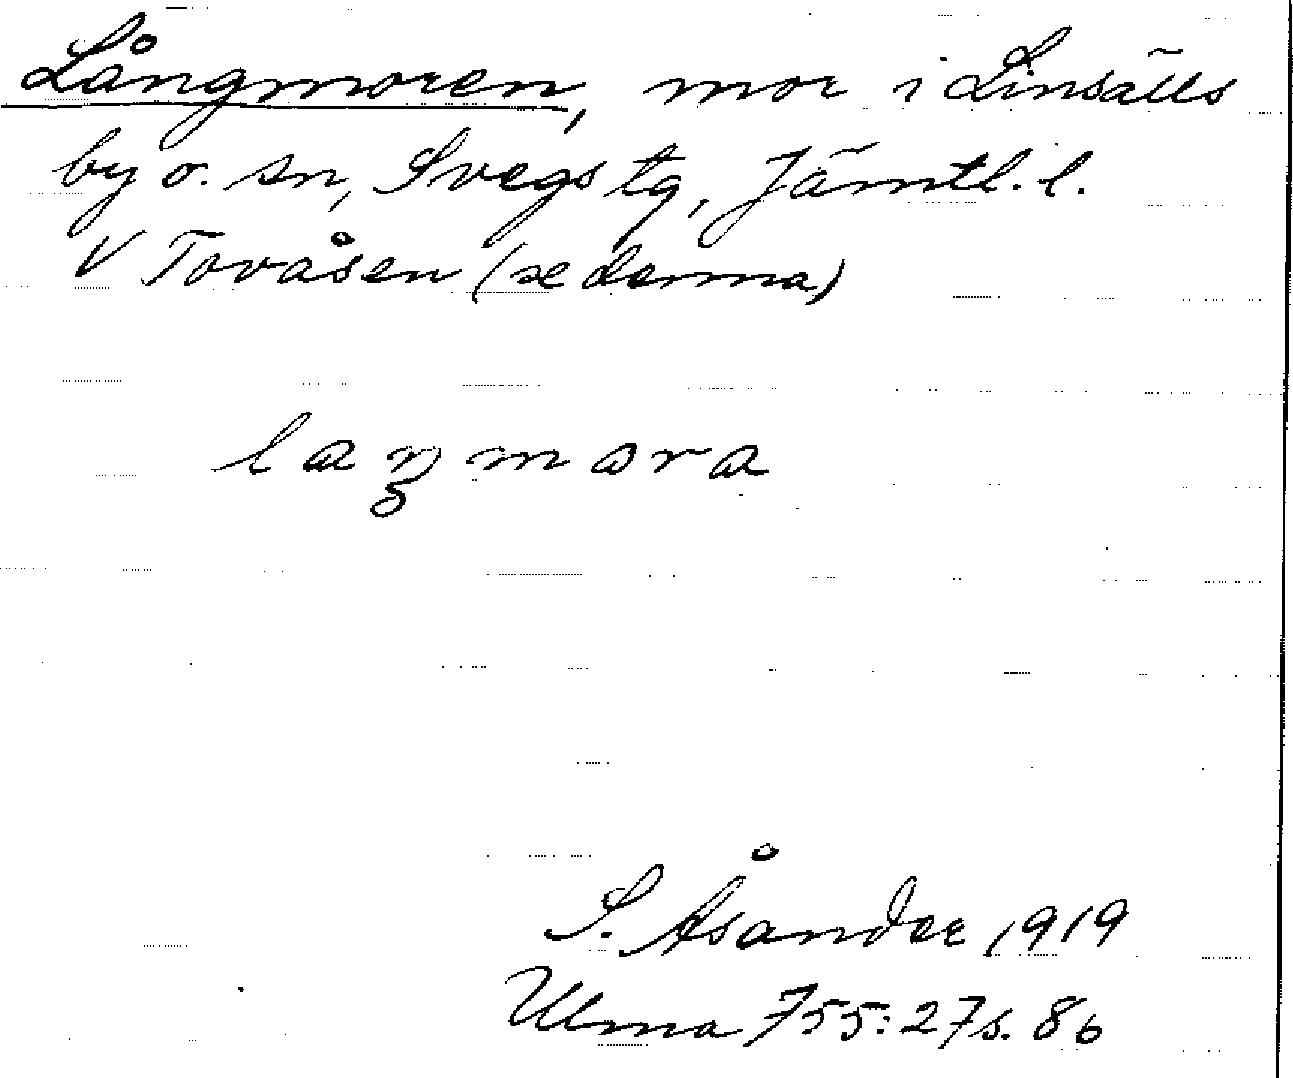 Långmoren, mor i Linsälls
by o. sn, Svegs tg, Jämtl. l.
V Tovåsen (se denna)
laŋmɷra
S. Åsander 1919
Ulma 755:27 s. 86